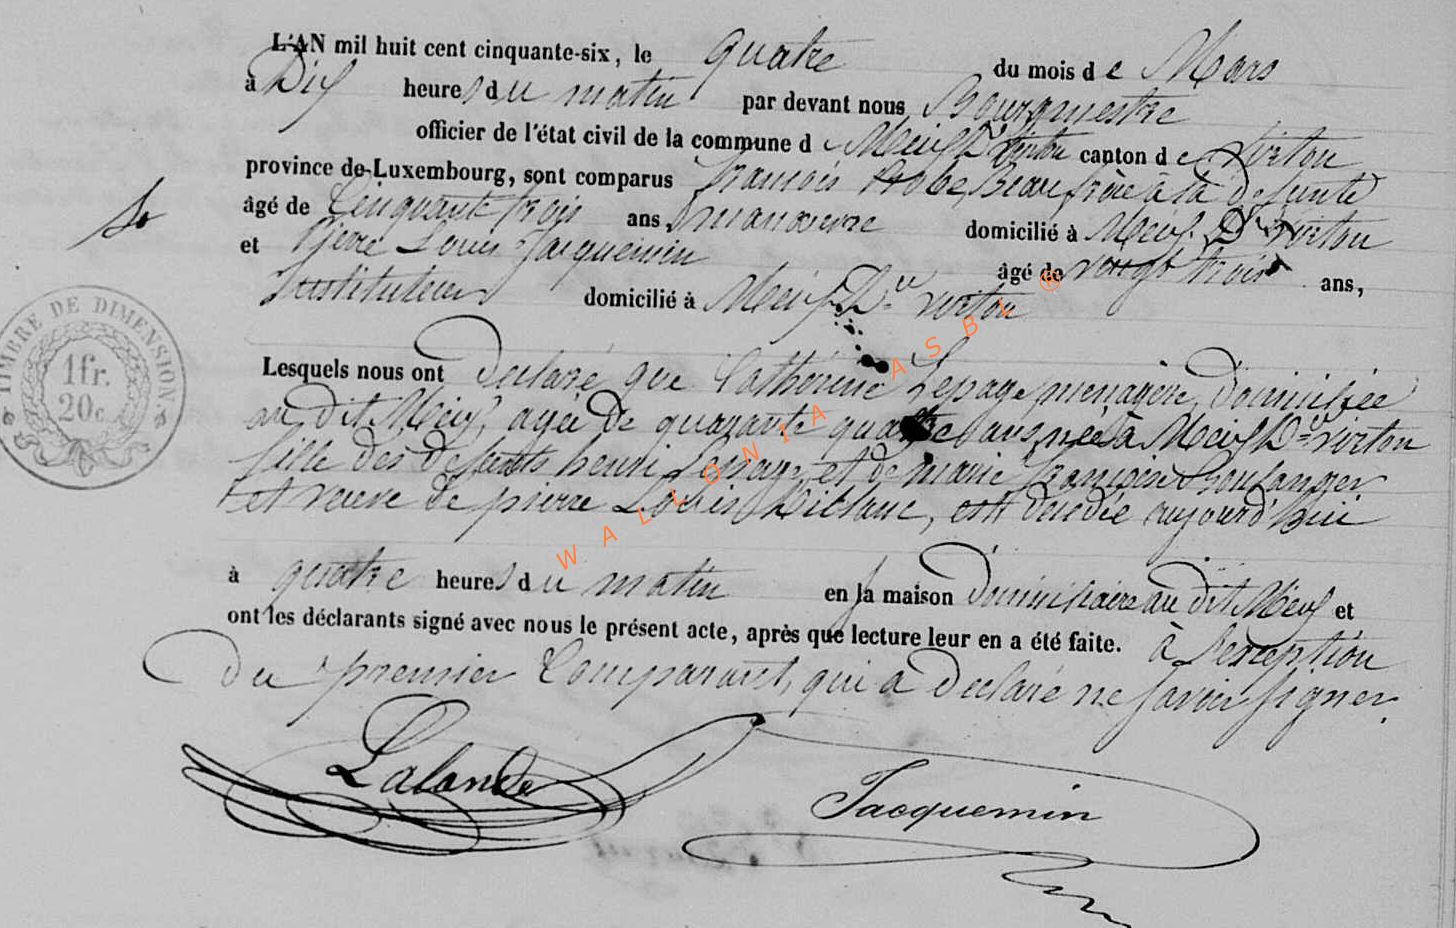 L'AN mil huit cent cinquante-six, le quatre du mois de Mars
à Dix heures du matin par devant nous Bourgmestre
officier de l'état civil de la commune d Meix Dt Virton canton de Virton
province de Luxembourg, sont comparus françois beaufrère à la defunte
âgé de Cinquante trois ans, manoeuvre domicilié à Meix Dt virton
et Pierre Louis Jacquemin âgé de vingt trois ans,
Instituteur domicilié à Meix Dt virton
Lesquels nous ont Declaré que Catherine Lepage, menagère, Domiciliée
au dit Meix, agée De quarante quatre ans, née à Meix Dt virton
fille des defunts henri Lepage et de marie françoise Boulanger
et veuve de pierre Louis, est décédée aujourd'hui
à quatre heures du matin en sa maison Domiciliaire au dit Meix et
ont les déclarants signé avec nous le présent acte, après que lecture leur en a été faite. à l'exception
Du premier Comparant, qui a Declaré ne savoir signer.
Lalande
Jacquemin
TIMBRE DE DIMENSION
1 fr.
20 c
WALLONIA ASBL ®